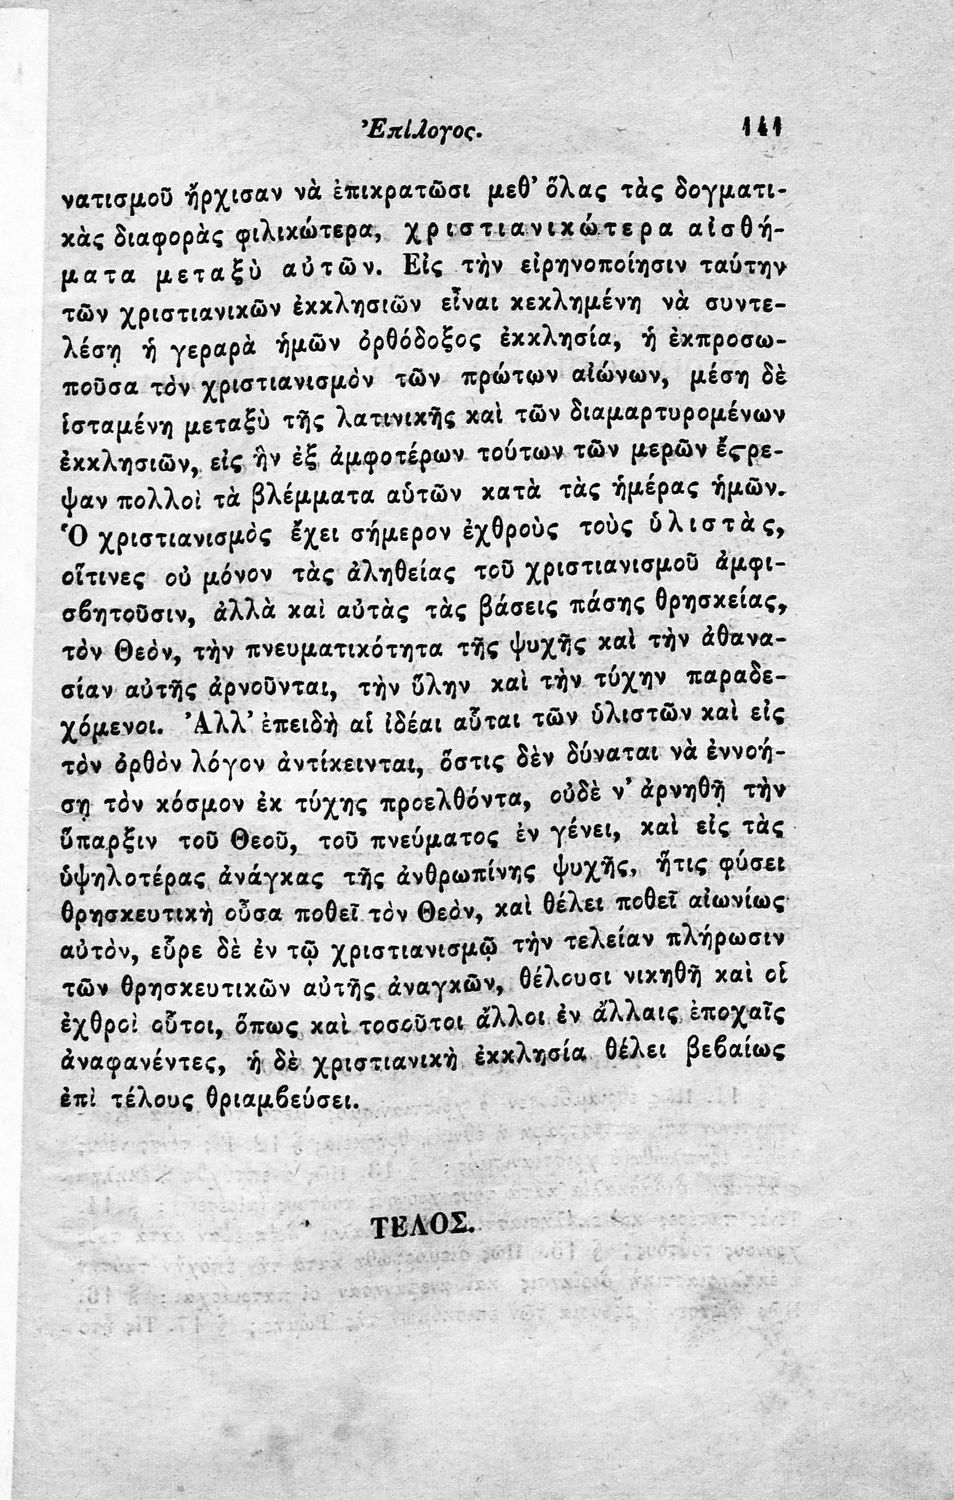 Ἐπίλογος. 141
νατισμοῦ ἤρχισαν νὰ ἐπικρατῶσι μεθ’ ὅλας τὰς δογματι-
κὰς διαφορὰς φιλικώτερα, χριστιανικώτερα αἰσθή-
ματα μεταξὺ αὐτῶν. Εἰς τὴν εἰρηνοποίησιν ταύτην
τῶν χριστιανικῶν ἐκκλησιῶν εἶναι κεκλημένη νὰ συντε-
λέσῃ ἡ γεραρὰ ἡμῶν ὀρθόδοξος ἐκκλησία, ἡ ἐκπροσω-
ποῦσα τὸν χριστιανισμὸν τῶν πρώτων αἰώνων, μέση δὲ
ἱσταμένη μεταξὺ τῆς λατινικῆς καὶ τῶν διαμαρτυρομένων
ἐκκλησιῶν, εἰς ἣν ἐξ ἀμφοτέρων τούτων τῶν μερῶν ἔϛρε-
ψαν πολλοὶ τὰ βλέμματα αὑτῶν κατὰ τὰς ἡμέρας ἡμῶν.
Ὁ χριστιανισμὸς ἔχει σήμερον ἐχθροὺς τοὺς ὑλιστὰς,
οἵτινες οὐ μόνον τὰς ἀληθείας τοῦ χριστιανισμοῦ ἀμφι-
σβητοῦσιν, ἀλλὰ καὶ αὐτὰς τὰς βάσεις πάσης θρησκείας,
τὸν Θεὸν, τὴν πνευματικότητα τῆς ψυχῆς καὶ τὴν ἀθανα-
σίαν αὐτῆς ἀρνοῦνται, τὴν ὕλην καὶ τὴν τύχην παραδε-
χόμενοι. Ἀλλ’ ἐπειδὴ αἱ ἰδέαι αὗται τῶν ὑλιστῶν καὶ εἰς
τὸν ὀρθὸν λόγον ἀντίκεινται, ὅστις δὲν δύναται νὰ ἐννοή-
σῃ τὸν κόσμον ἐκ τύχης προελθόντα, οὐδὲ ν’ ἀρνηθῇ τὴν
ὕπαρξιν τοῦ Θεοῦ, τοῦ πνεύματος ἐν γένει, καὶ εἰς τὰς
ὑψηλοτέρας ἀνάγκας τῆς ἀνθρωπίνης ψυχῆς, ἥτις φύσει
θρησκευτικὴ οὖσα ποθεῖ τὸν Θεὸν, καὶ θέλει ποθεῖ αἰωνίως
αὐτὸν, εὗρε δὲ ἐν τῷ χριστιανισμῷ τὴν τελείαν πλήρωσιν
τῶν θρησκευτικῶν αὐτῆς ἀναγκῶν, θέλουσι νικηθῆ καὶ οἱ
ἐχθροὶ οὗτοι, ὅπως καὶ τοσοῦτοι ἄλλοι ἐν ἄλλαις ἐποχαῖς
ἀναφανέντες, ἡ δὲ χριστιανικὴ ἐκκλησία θέλει βεβαίως
ἐπὶ τέλους θριαμβεύσει.
ΤΕΛΟΣ.